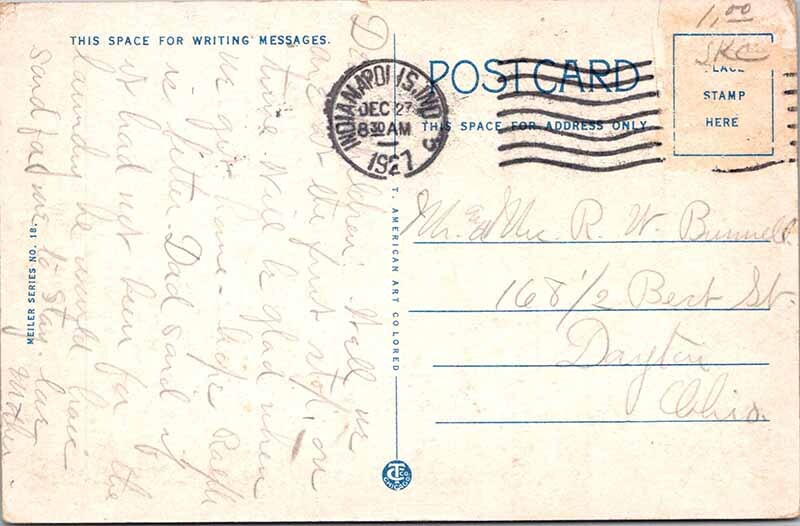 THIS SPACE FOR WRITING MESSAGES.
Dear Children: Well we
are at the first stop on
time. Will be glad when
we get home. Hope Ralph
is better. Dad said if
it had not been for the
laundry he would have
said for me to stay. Love
Mother.
MEILER SERIES NO. 18.
T. AMERICAN ART COLORED
C.T. CO. CHICAGO
INDIANAPOLIS, IND
DEC 27
8 30 AM
1927
3
POSTCARD
THIS SPACE FOR ADDRESS ONLY
1.00
SKC
PLACE
STAMP
HERE
Mr. and Mrs. R. W. Bunnell
168 1/2 Best St.
Dayton
Ohio.